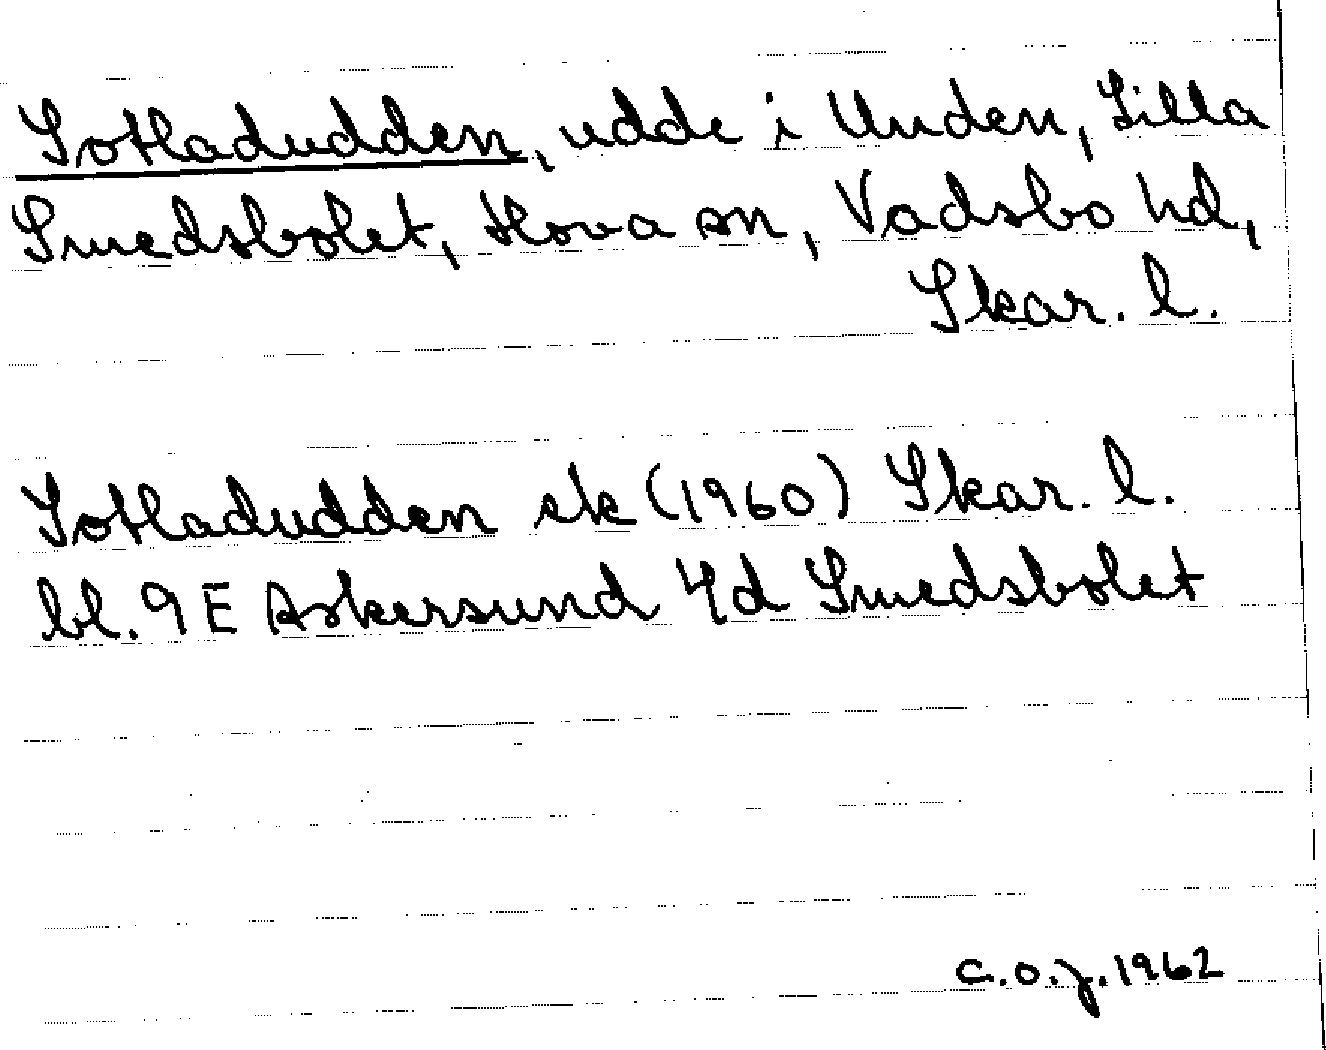 Sotladudden, udde i Unden, Lilla
Smedsbolet, Hova sn, Vadsbo hd,
Skar. l.
Sotladudden ek (1960) Skar. l.
bl. 9E Askersund 4d Smedsbolet
C.O.J. 1962